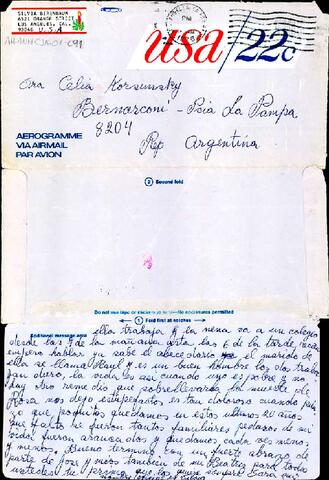 SILVIA BIRENBAUM
6521 ORANGE STREET
LOS ANGELES, CAL.
90048 U.S.A
usa/22c
PM
Sra Celia Korsunsky
Bernasconi - Pcia La Pampa
8204
Rep Argentina
AEROGRAMME
VIA AIRMAIL
PAR AVION
2 Second fold
Do not use tape or stickers to seal - No enclosures permitted
1 Fold first at notches
Additional message area
ella trabaja y la nena va a un colegio
desde las 7 de la mañana asta las 6 de la tarde, recien
empezo hablar ya sabe el abecedario el marido de
ella se llama Raul y es un buen hombre los dos trabajan
duro, la vida es asi cuando uno es pobre y no
hay otro remedio que sobrellevarla, la muerte de
Rosa nos dejo estupefactos es tan doloroso cuando pienso
que poquitos quedamos en estos ultimos 20 años,
que falto se fueron tantos familiares pedazos de mi
vida fueron arancados y quedamos cada ves menos
y menos, Bueno termino con un fuerte abrazo de
parte de Jose y mios tambien de mi Beatriz para todos
ustedes tu prima que los quiere siempre